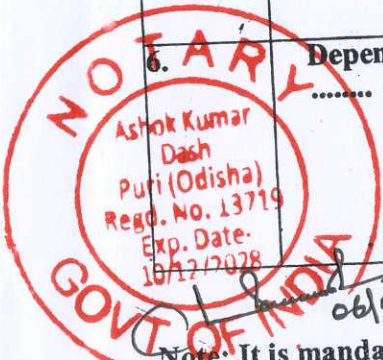 6. Depen
........
NOTARY
Ashok Kumar
Dash
Puri (Odisha)
Regd. No. 13719
Exp. Date-
10/12/2028
GOVT OF INDIA
06/1
Note: It is manda